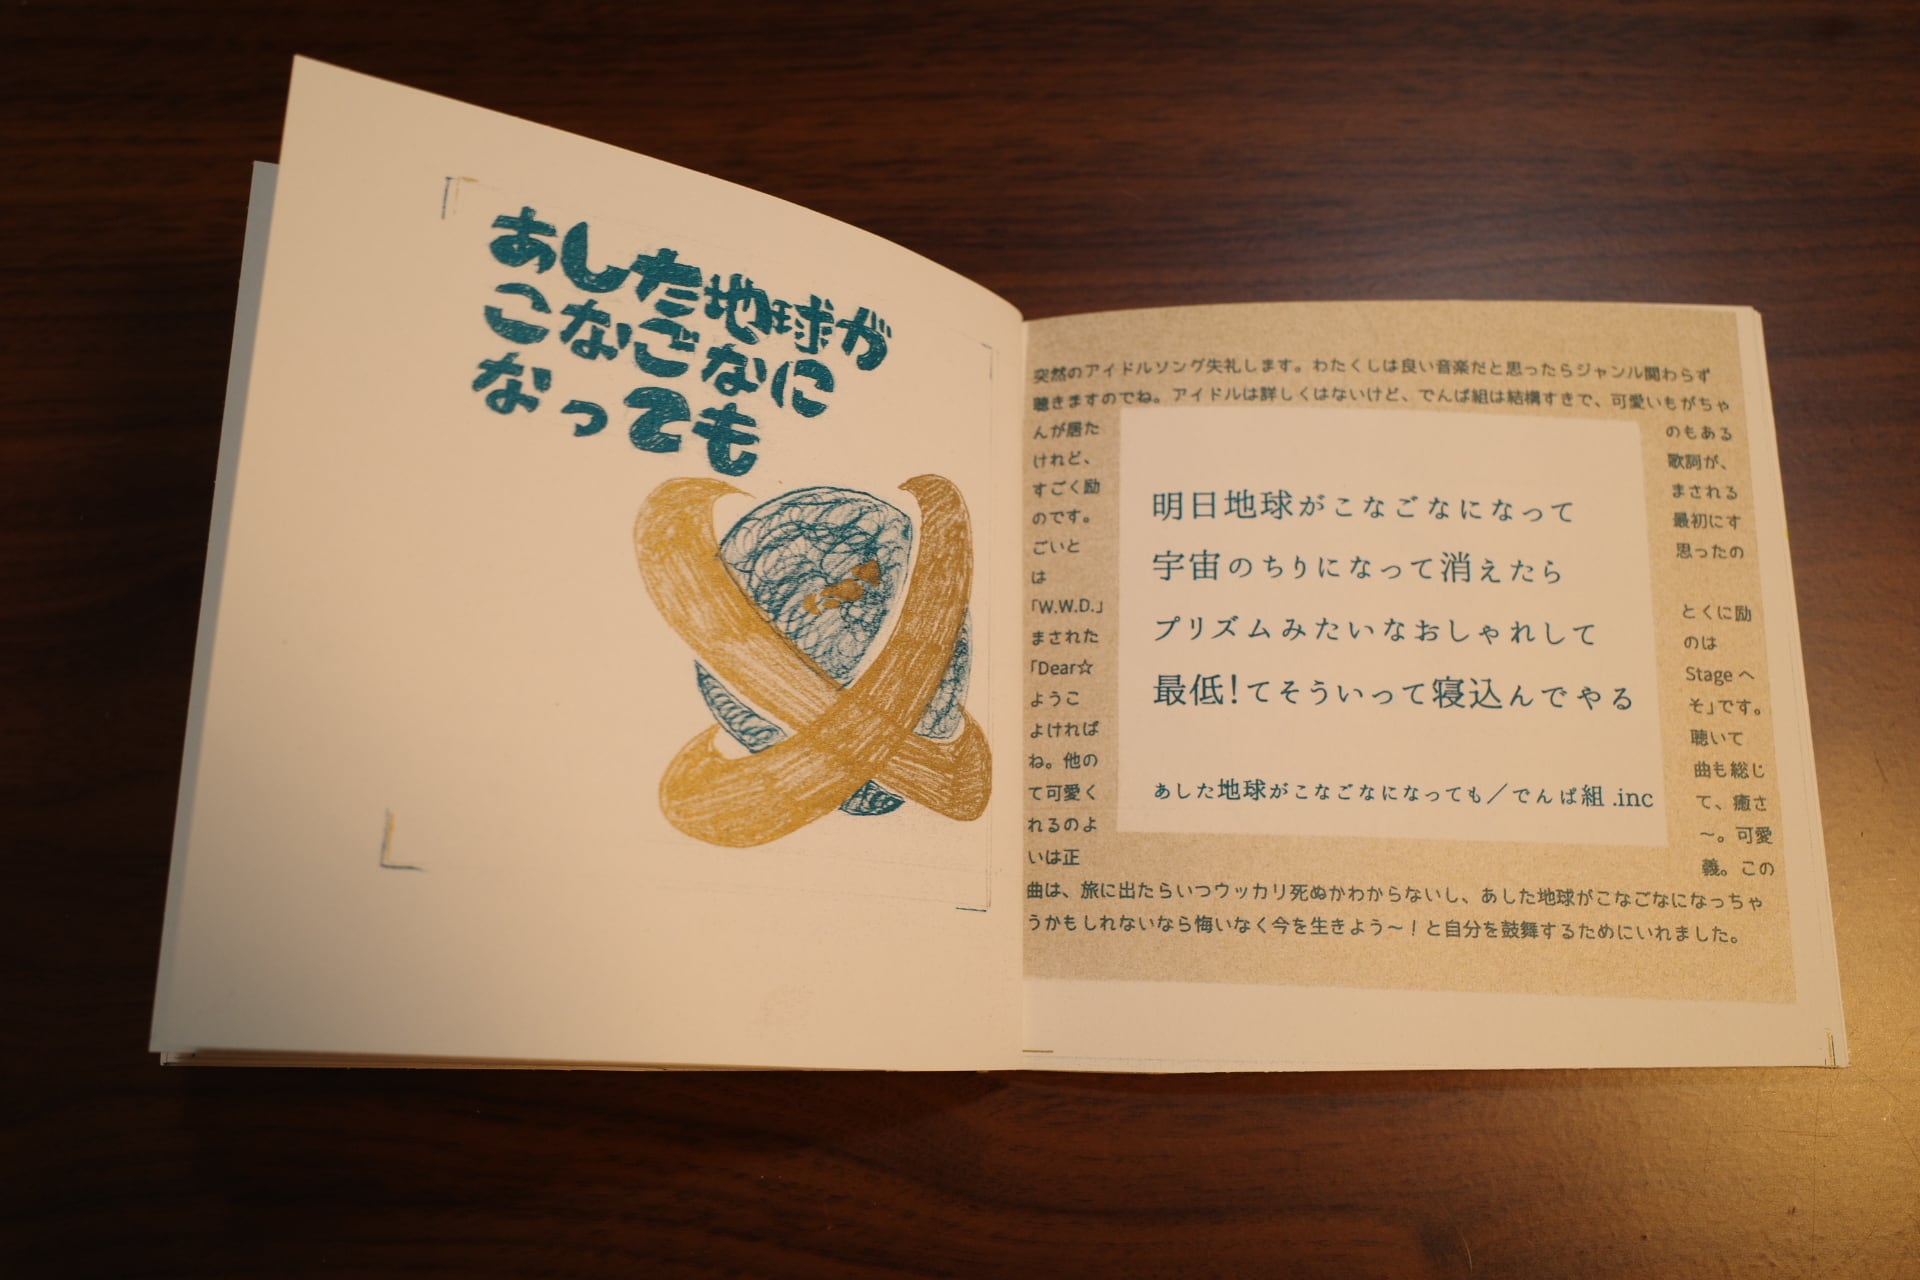 あした地球が
こなごなに
なっても
突然のアイドルソング失礼します。わたくしは良い音楽だと思ったらジャンル関わらず
聴きますのでね。アイドルは詳しくはないけど、でんぱ組は結構すきで、可愛いもがちゃ
んが居た のもある
けれど、 歌詞が、
すごく励 まされる
のです。 最初にす
ごいと 思ったの
は
「W.W.D.」 とくに励
まされた のは
「Dear☆ Stageへ
ようこ そ」です。
よければ 聴いて
ね。他の 曲も総じ
て可愛く て、癒さ
れるのよ 〜。可愛
いは正 義。この
曲は、旅に出たらいつウッカリ死ぬかわからないし、あした地球がこなごなになっちゃ
うかもしれないなら悔いなく今を生きよう〜！と自分を鼓舞するためにいれました。
明日地球がこなごなになって
宇宙のちりになって消えたら
プリズムみたいなおしゃれして
最低！てそういって寝込んでやる
あした地球がこなごなになっても／でんぱ組.inc